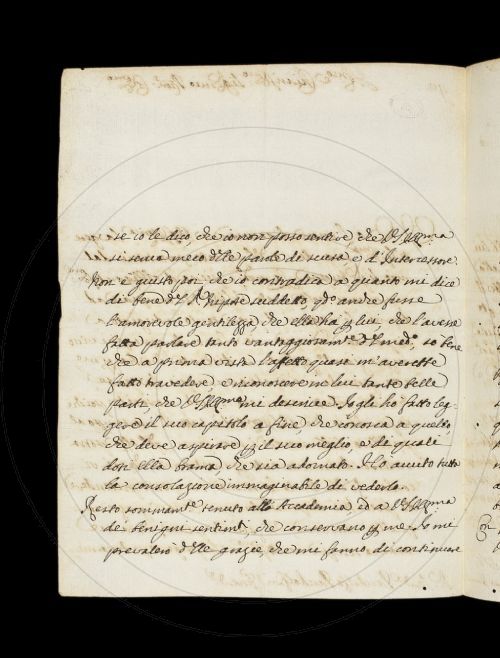 se io le dico, che io non posso sentire che V.S. Ill.ma
si serva meco delle parole di scusa e d'Intercessore.
Non è giusto poi che io contradica a quanto mi dice
di bene del Nipote suddetto q.do anche fusse
l'amorevole gentilezza che ella ha per lui, che l'avesse
fatta parlare tanto vantaggiosam.te del med.o, so bene
che a prima vista l'affetto quasi m'averebbe
fatto travedere, e riconoscere in lui tante belle
parti, che V.S. Ill.ma mi descrive. Io gli ho fatto leg-
gere il suo capitolo a fine che conosca a quello,
che deve aspirare per il suo meglio, e di quali
doti ella brama, che sia adornato. Ho avuto tutta
la consolazione immaginabile di vederlo.
Resto sommam.te tenuto alla Accademia ed a V.S. Ill.ma
de benigni sentim.ti, che conservano per me. Io mi
prevalerò delle grazie, che mi fanno, di continuare